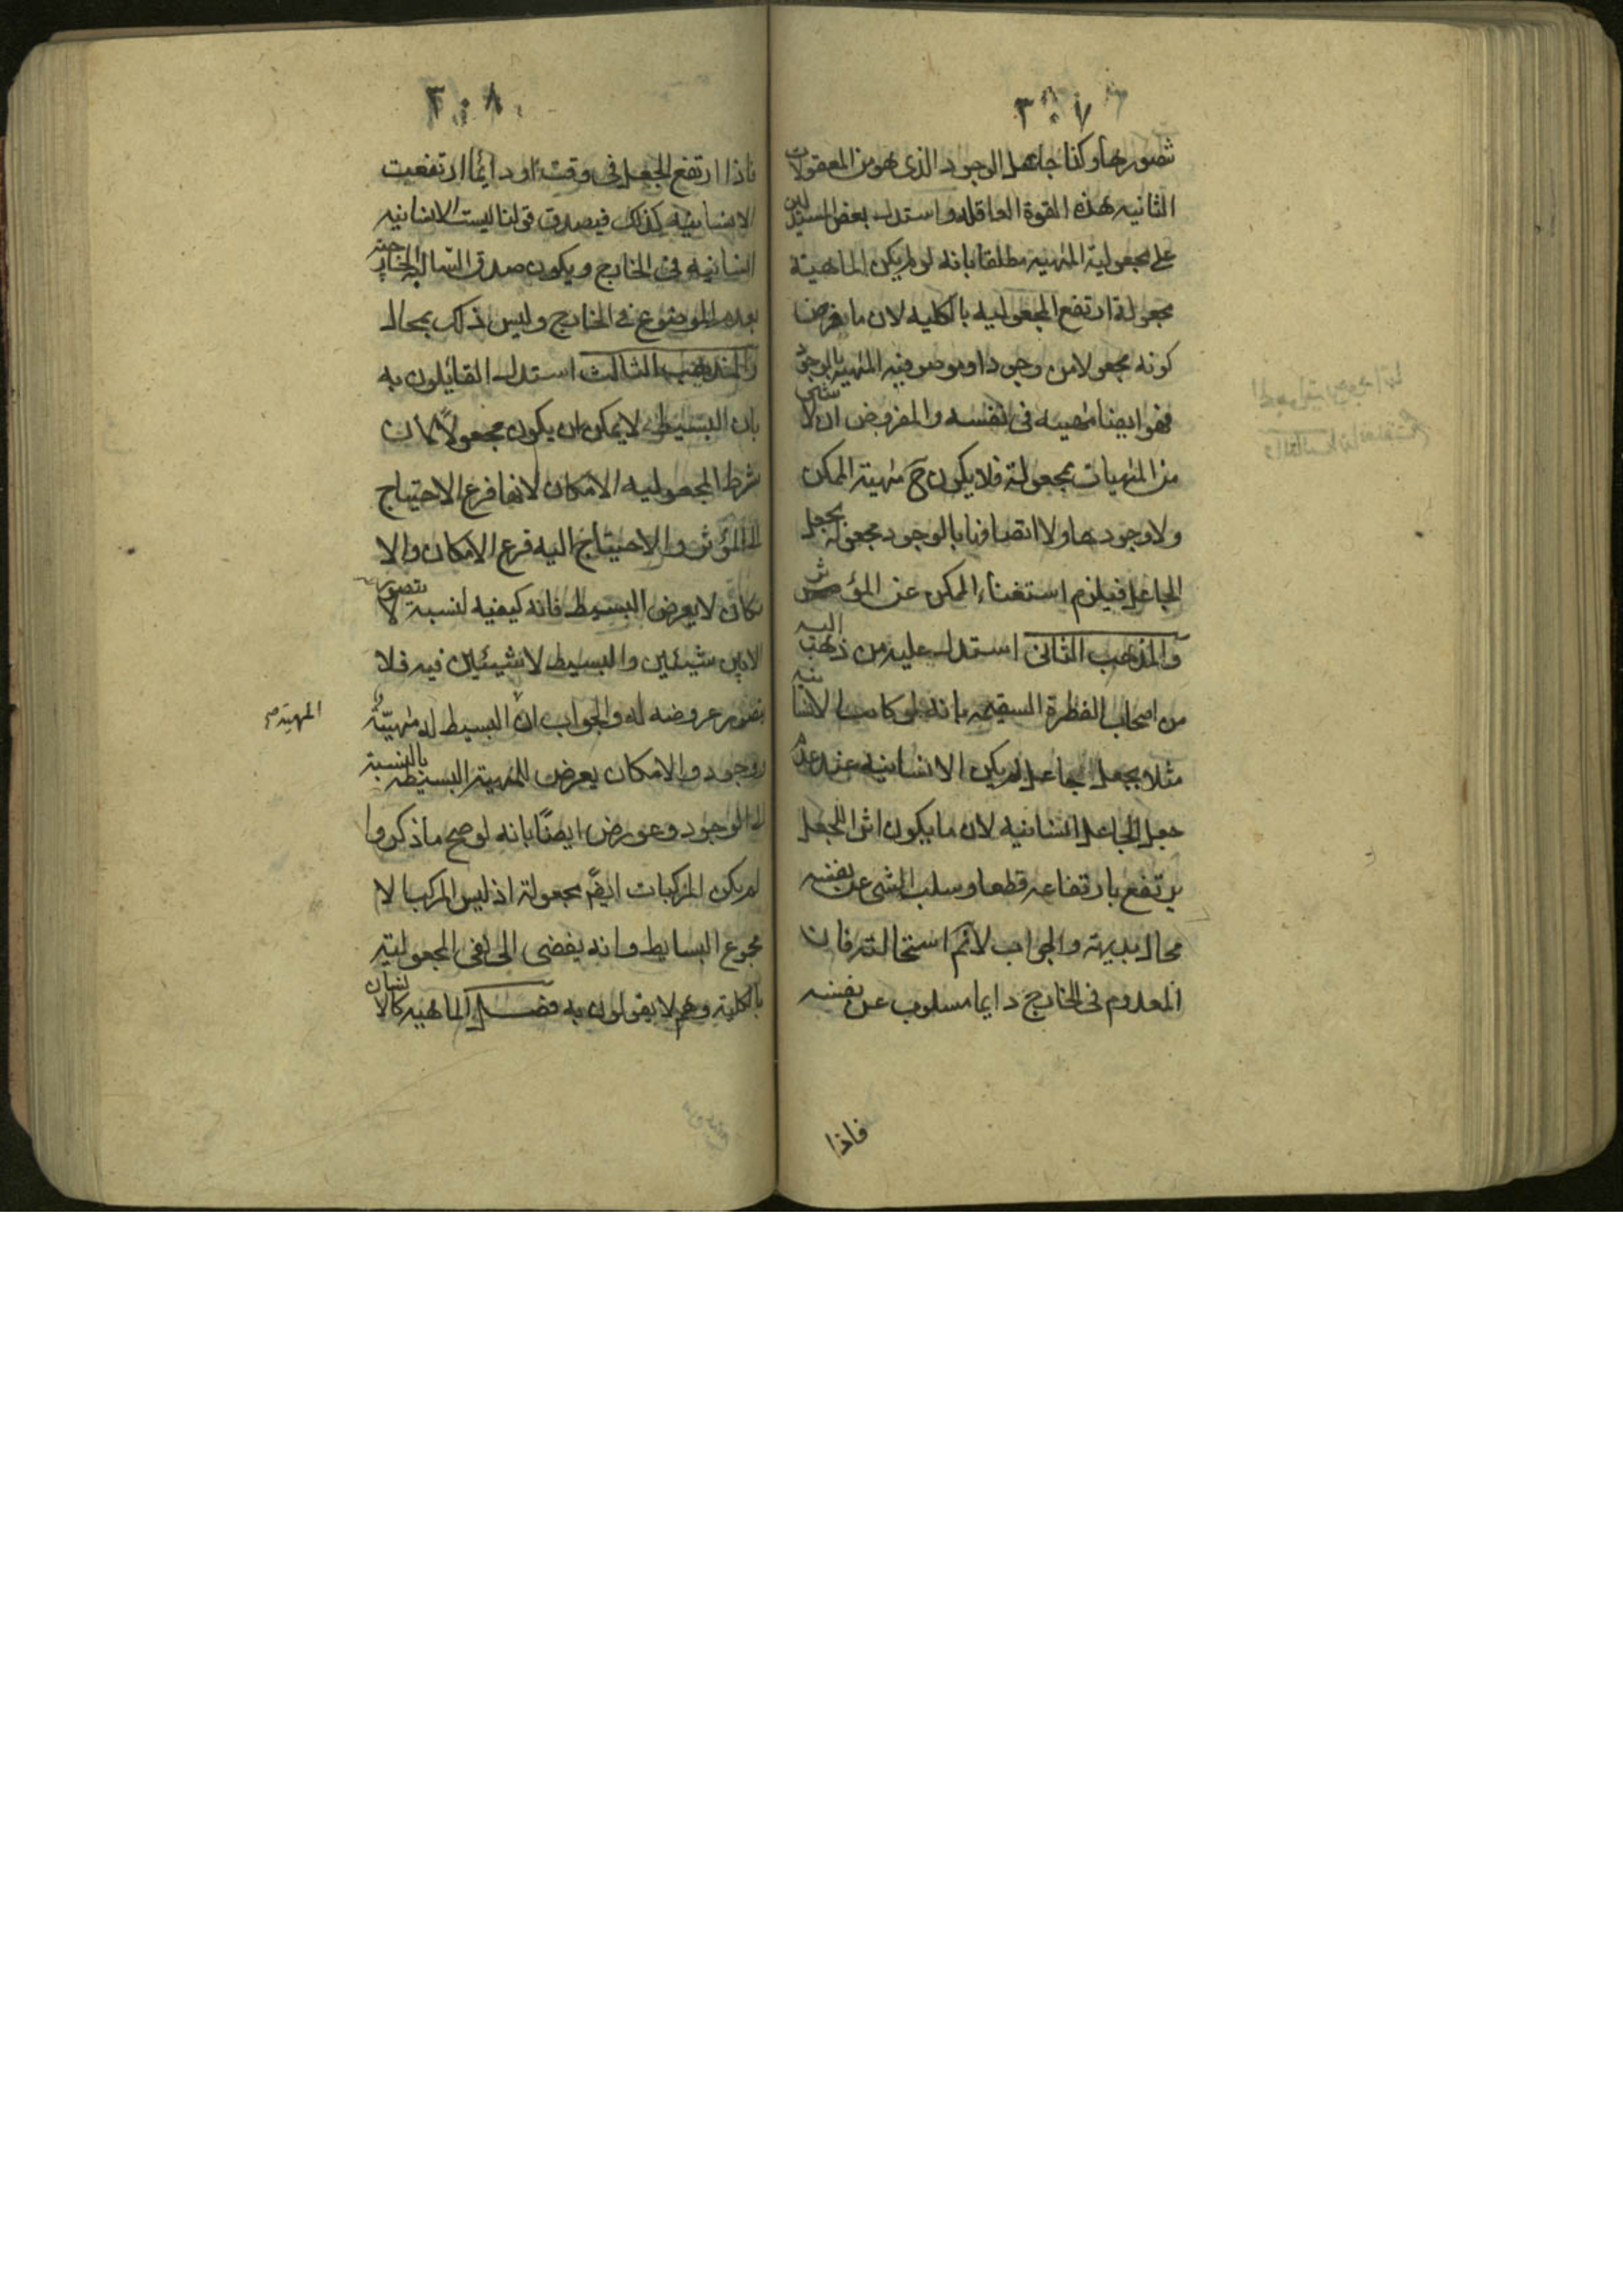 ٣٠٧
تصورها وكنا جاعل الوجود الذى هو من المعقولات
الثانيه هذه القوة العاقله واستدل بعض المستدلين
على مجعولية المهية مطلقا بانه لو لم يكن الماهية
مجعولة ارتفع المجعوليه بالكليه لان ما يفرض
كونه مجعولا من وجود او موصوفيه المهية بالوجود
فهو ايضا مهيه فى نفسه والمفروض ان لا شى
من المهيات مجعولة فلا يكون ح مهية الممكن
ولا وجودها ولا اتصافنا بالوجود مجعولة بجعل
الجاعل فيلزم استغناء الممكن عن المؤثر
والمذهب الثانى استدل عليه من ذهب اليه
من اصحاب الفطرة السقيمه بانه لو كانت الانسانيه
مثلا بجعل جاعل لم يكن الانسانيه عند عدم
جعل الجاعل انسانيه لان ما يكون اثرا للجعل
يرتفع بارتفاعه قطعا وسلب الشى عن نفسه
محال بديهة والجواب لانم استحالته فان
المعدوم فى الخارج دايما مسلوب عن نفسه
فاذا
٣٠٨
فاذا ارتفع الجعل فى وقت او دايما ارتفعت
الانسانيه كذلك فيصدق قولنا ليست الانسانيه
انسانيه فى الخارج ويكون صدق السالبه الخارجيه
بعدم الموضوع فى الخارج وليس ذلك بمحال
والمذهب الثالث استدل القايلون به
بان البسيط لا يمكن ان يكون مجعولاً لان
شرط المجعوليه الامكان لانها فرع الاحتياج
الى المؤثر والاحتياج اليه فرع الامكان والا
مكان لا يعرض البسيط فانه كيفيه لنسبة لا يتصور
الا بين شيئين والبسيط لا شيئين فيه فلا
يتصور عروضه له والجواب ان البسيط له مهيّة
المهية صح
ووجود والامكان يعرض للمهية البسيطه بالنسبة
الى الوجود وعورض ايضاً بانه لو صح ما ذكروا
لم يكن المركبات ايضً مجعولة اذ ليس المركب الا
مجموع البسايط وانه يفضى الى نفى المجعولية
بالكلية وهم لا يقولون به فصل الماهيه كالانسان